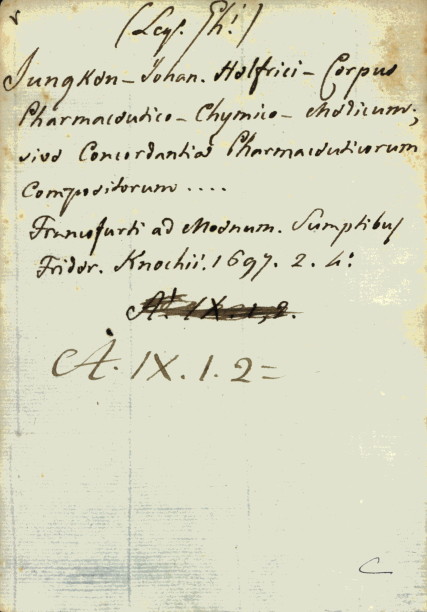 (Leg. Th!)
Jungken – Johan. Helfrici – Corpus
Pharmaceutico – Chymico – Medicum;
sive Concordantia Pharmaceuticorum
Compositorum ....
Francofurti ad Moenum. Sumptibus
Frider. Knochii. 1697. 2. 4:
A. IX. 1, 2.
A. IX. 1. 2 =
C